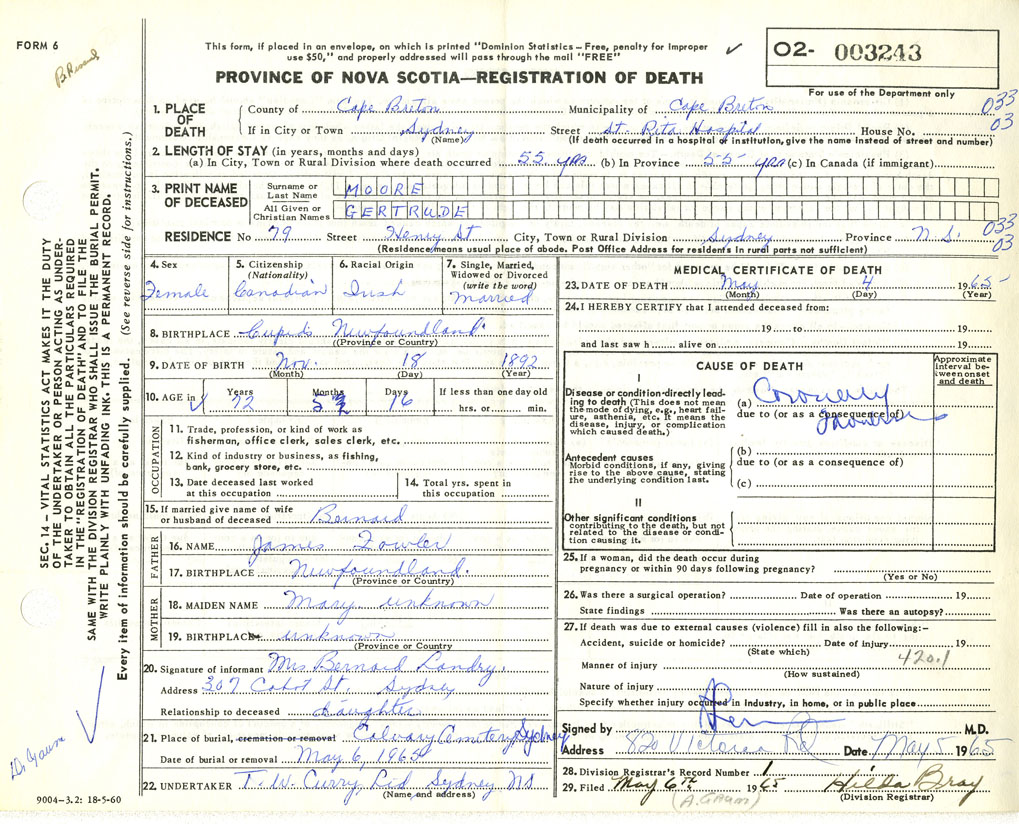 FORM 6
This form, if placed in an envelope, on which is printed "Dominion Statistics – Free, penalty for improper
use $50," and properly addressed will pass through the mail "FREE"
O2- 003243
For use of the Department only
PROVINCE OF NOVA SCOTIA—REGISTRATION OF DEATH
1. PLACE OF DEATH
County of Cape Breton Municipality of Cape Breton 033
If in City or Town Sydney Street St. Rita Hospital House No. 03
(Name) (If death occurred in a hospital or institution, give the name instead of street and number)
2. LENGTH OF STAY (in years, months and days)
(a) In City, Town or Rural Division where death occurred 55 yrs (b) In Province 55 yrs (c) In Canada (if immigrant)
3. PRINT NAME OF DECEASED
Surname or Last Name MOORE
All Given or Christian Names GERTRUDE
RESIDENCE No 79 Street Henry St City, Town or Rural Division Sydney Province N.S. 033 03
(Residence means usual place of abode. Post Office Address for residents in rural parts not sufficient)
4. Sex Female
5. Citizenship (Nationality) Canadian
6. Racial Origin Irish
7. Single, Married, Widowed or Divorced (write the word) Married
8. BIRTHPLACE Cupids Newfoundland.
(Province or Country)
9. DATE OF BIRTH Nov. 18 1892
(Month) (Day) (Year)
10. AGE in Years 72 Months 5 Days 16 If less than one day old hrs. or min.
OCCUPATION
11. Trade, profession, or kind of work as
fisherman, office clerk, sales clerk, etc.
12. Kind of industry or business, as fishing,
bank, grocery store, etc.
13. Date deceased last worked
at this occupation
14. Total yrs. spent in
this occupation
15. If married give name of wife
or husband of deceased Bernard
FATHER
16. NAME James Fowler
17. BIRTHPLACE Newfoundland.
(Province or Country)
MOTHER
18. MAIDEN NAME Mary unknown
19. BIRTHPLACE unknown
(Province or Country)
20. Signature of informant Mrs Bernard Landry.
Address 307 Cabot St. Sydney
Relationship to deceased daughter
21. Place of burial, cremation or removal Calvary Cemetery Sydney
Date of burial or removal May 6, 1965
22. UNDERTAKER T. W. Curry, Ltd Sydney NS
(Name and address)
9004–3.2: 18-5-60
MEDICAL CERTIFICATE OF DEATH
23. DATE OF DEATH May 4 1965
(Month) (Day) (Year)
24. I HEREBY CERTIFY that I attended deceased from:
19 to 19
and last saw h alive on 19
CAUSE OF DEATH
Approximate interval between onset and death
I
Disease or condition directly leading to death (This does not mean the mode of dying, e.g., heart failure, asthenia, etc. It means the disease, injury, or complication which caused death.)
(a) Coronary
due to (or as a consequence of)
Antecedent causes
Morbid conditions, if any, giving rise to the above cause, stating the underlying condition last.
(b)
due to (or as a consequence of)
(c)
II
Other significant conditions
contributing to the death, but not related to the disease or condition causing it.
25. If a woman, did the death occur during
pregnancy or within 90 days following pregnancy?
(Yes or No)
26. Was there a surgical operation? Date of operation 19
State findings Was there an autopsy?
27. If death was due to external causes (violence) fill in also the following:–
Accident, suicide or homicide? Date of injury 19
(State which)
420.1
Manner of injury
(How sustained)
Nature of injury
Specify whether injury occured in Industry, in home, or in public place
Signed by M.D.
Address 820 Victoria Rd Date May 5 1965
28. Division Registrar's Record Number 1
29. Filed May 6th 1965 Hilda Bray
(A. GAUM) (Division Registrar)
SEC. 14 – VITAL STATISTICS ACT MAKES IT THE DUTY
OF THE UNDERTAKER OR PERSON ACTING AS UNDER-
TAKER TO OBTAIN ALL THE PARTICULARS REQUIRED
IN THE "REGISTRATION OF DEATH" AND TO FILE THE
SAME WITH THE DIVISION REGISTRAR WHO SHALL ISSUE THE BURIAL PERMIT.
WRITE PLAINLY WITH UNFADING INK. THIS IS A PERMANENT RECORD.
Every item of information should be carefully supplied. (See reverse side for instructions.)
Dr. Gaum